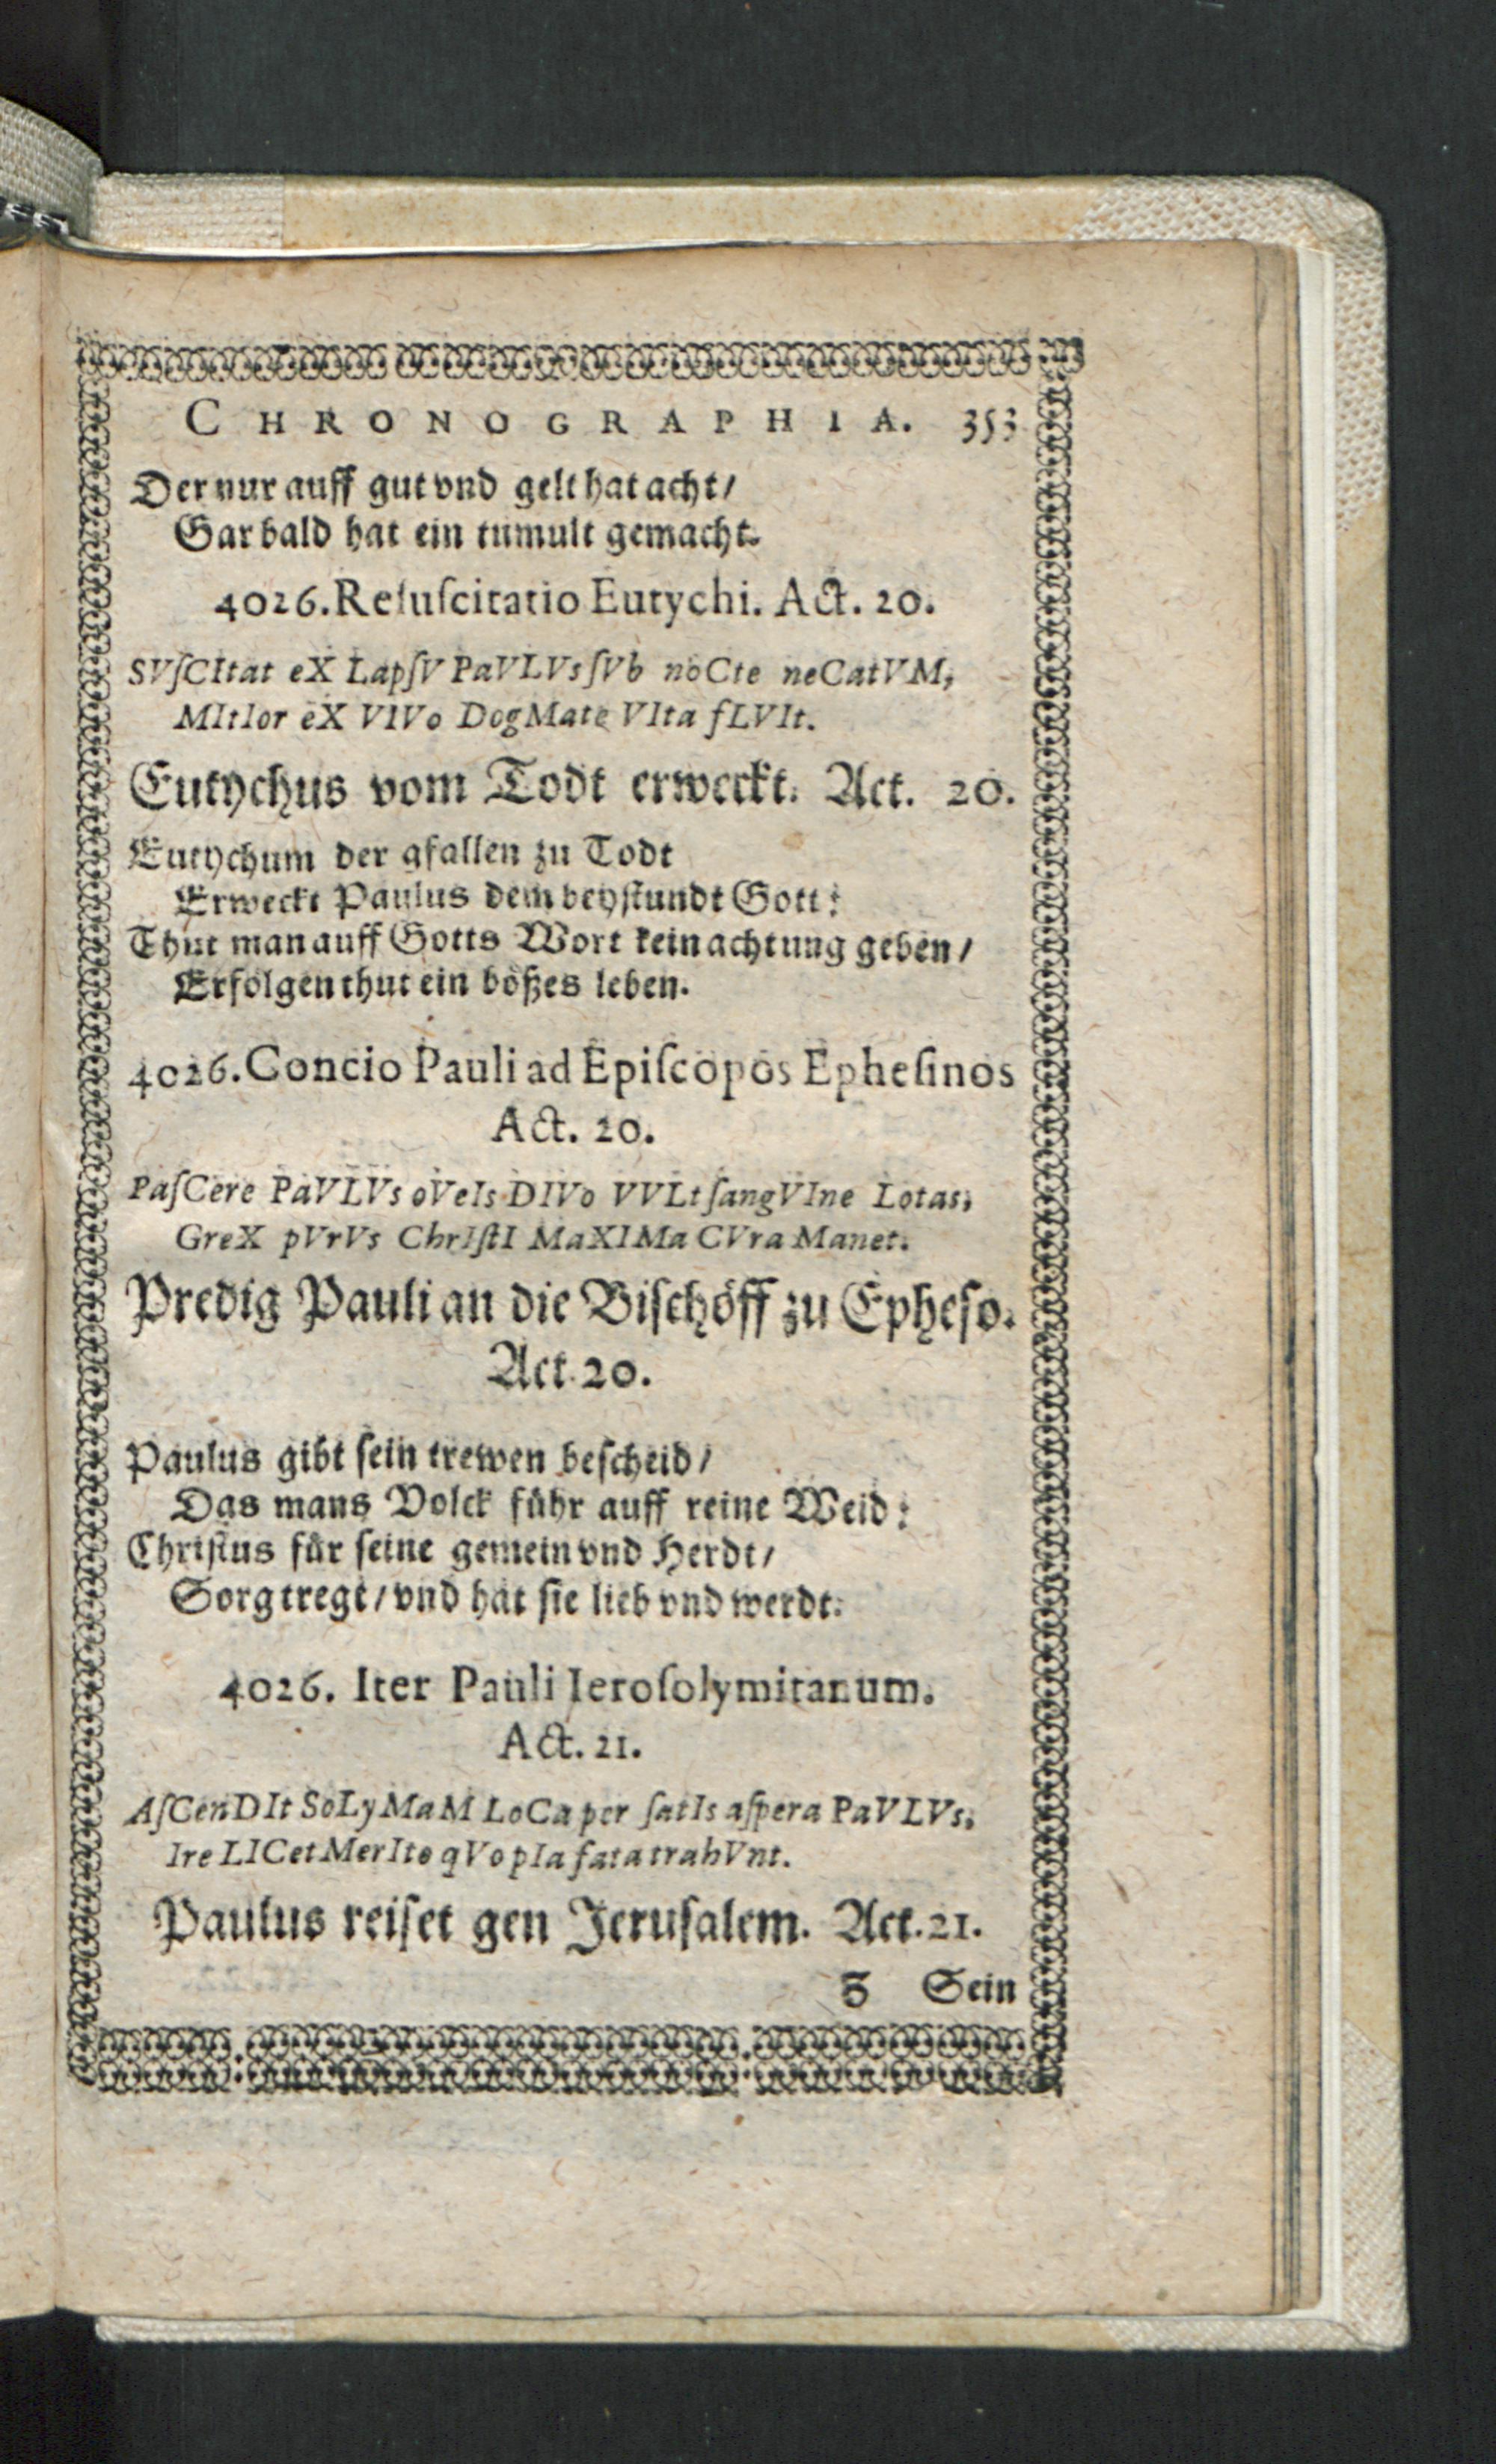 CHRONOGRAPHIA. 353
Der nur auff gut vnd gelt hat acht/
Gar bald hat ein tumult gemacht.
4026. Reſuſcitatio Eutychi. Act. 20.
SVſCItat eX LapſV PaVLVs ſVb noCte neCatVM,
MItIor eX VIVo DogMate VIta fLVIt.
Eutychus vom Todt erweckt. Act. 20.
Eutychum der gfallen zu Todt
Erweckt Paulus dem beyſtundt Gott:
Thut man auff Gotts Wort kein achtung geben/
Erfolgen thut ein bößes leben.
4026. Concio Pauli ad Epiſcopos Epheſinos
Act. 20.
PaſCere PaVLVs oVeIs DIVo VVLt ſangVIne Lotas,
GreX pVrVs ChrIſtI MaXIMa CVra Manet.
Predig Pauli an die Biſchöff zu Epheſo.
Act. 20.
Paulus gibt ſein trewen beſcheid/
Das mans Volck führ auff reine Weid:
Chriſtus für ſeine gemein vnd Herdt/
Sorg tregt/ vnd hat ſie lieb vnd werdt.
4026. Iter Pauli Ieroſolymitanum.
Act. 21.
AſCenDIt SoLyMaM LoCa per ſatIs aſpera PaVLVs,
Ire LICet MerIto qVo pIa fata trahVnt.
Paulus reiſet gen Jeruſalem. Act. 21.
Z Sein